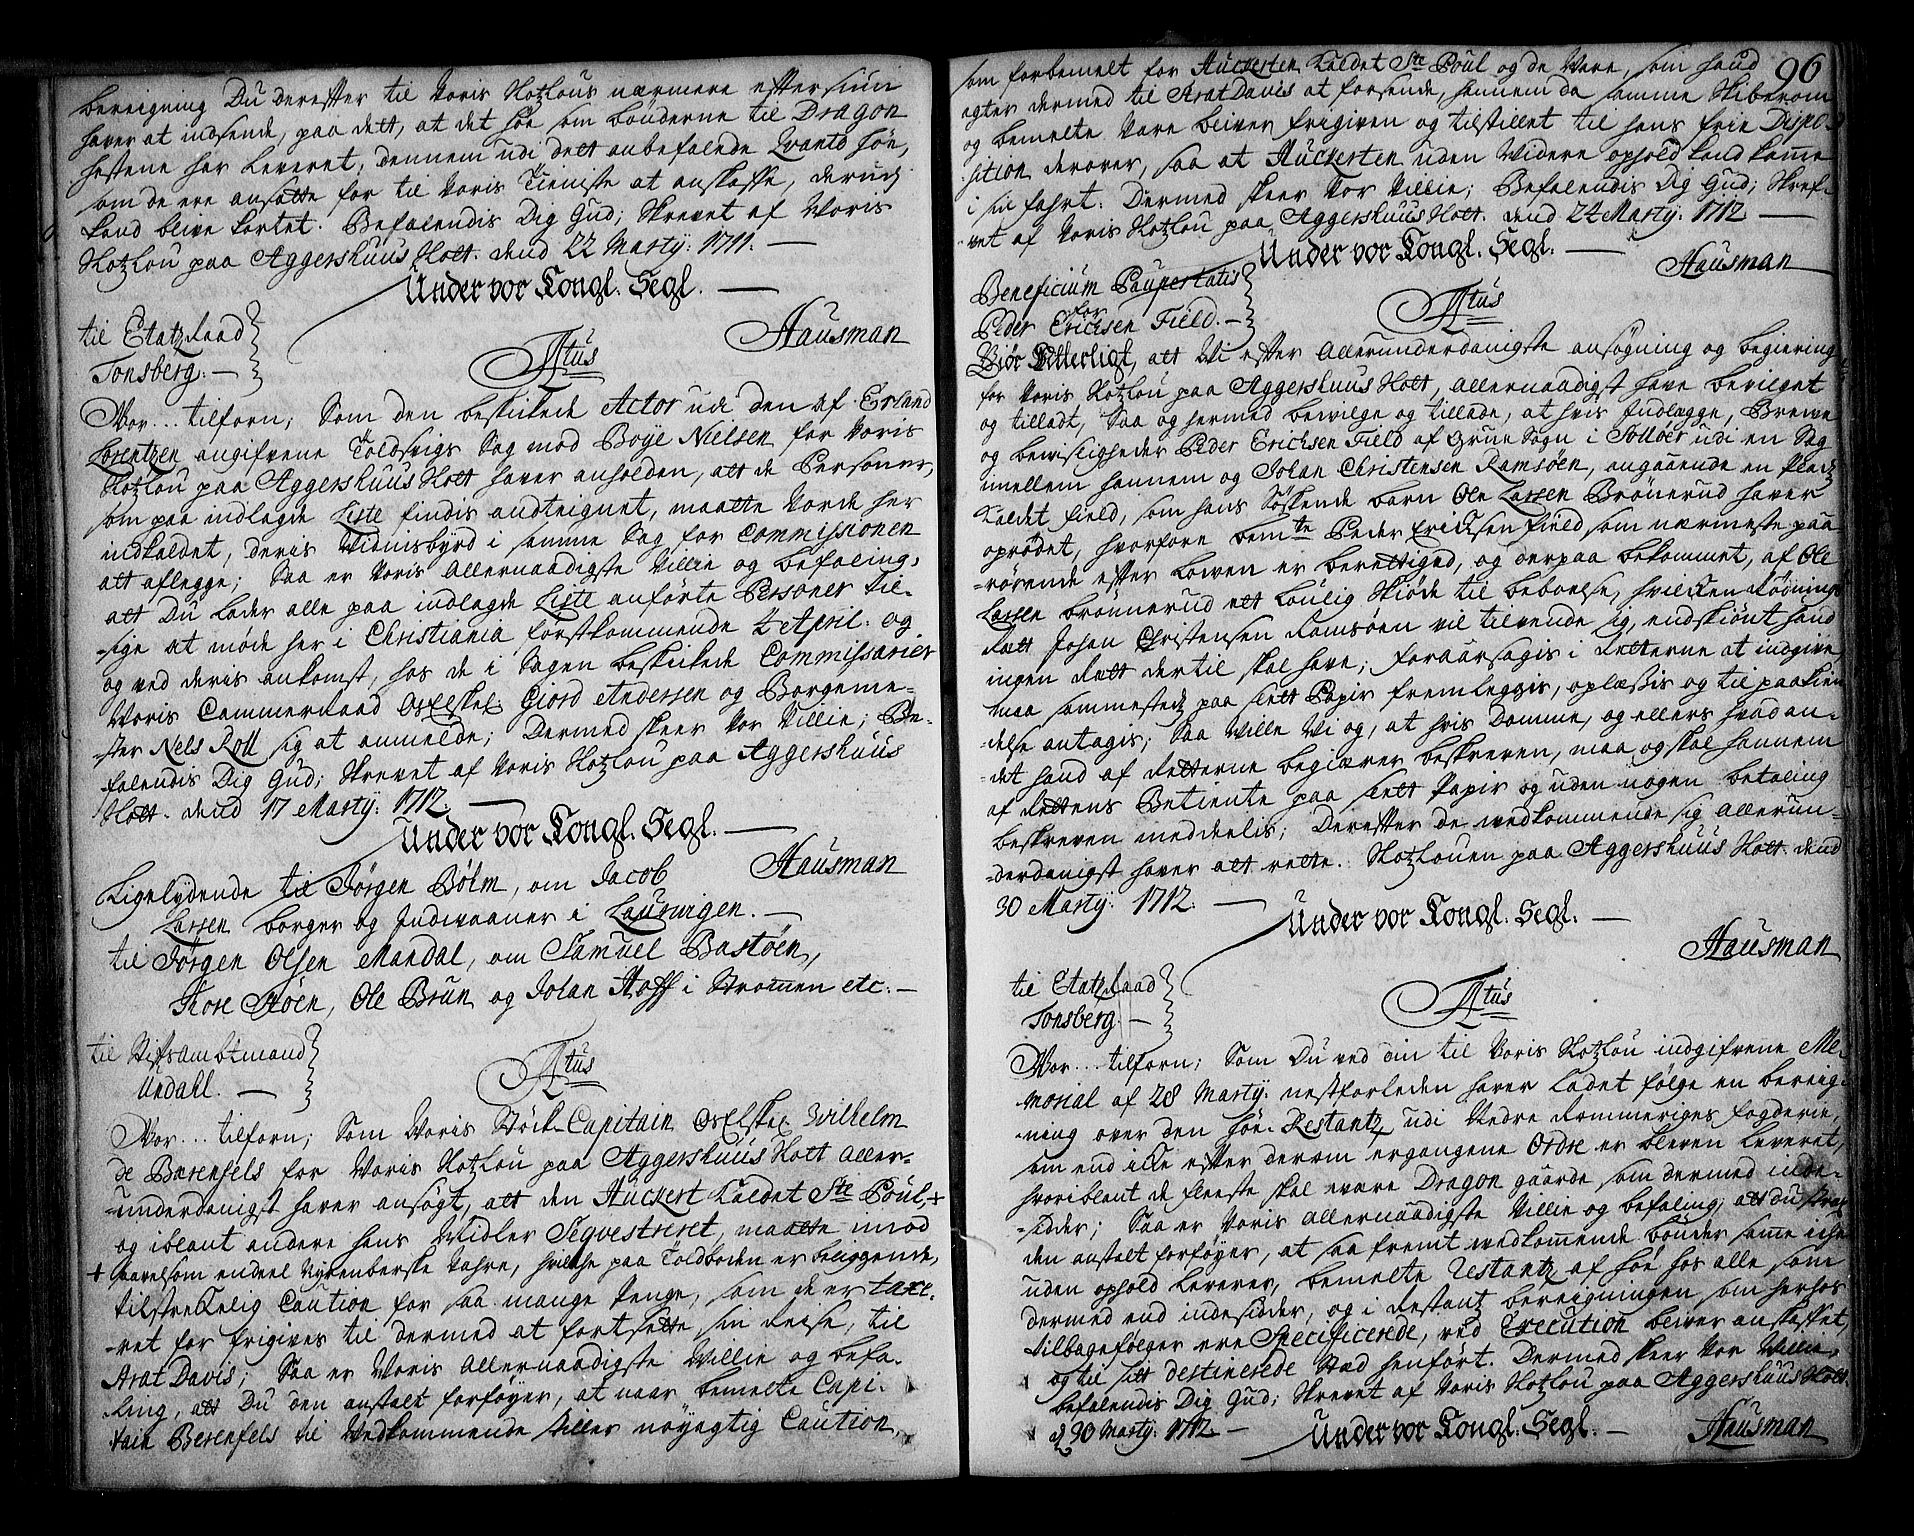 bereigning Du derefter til Voris Slotzlous nærmere eftersiun
haver at indsende, paa dett, at det høe som bønderne til Dragon
hestene har leveret, dennem udi dett anbefalede Qvanto høe,
som de ere ansatte for til Voris Tieniste at anskaffe, derudj
kand blive kortet. Befalendis Dig Gud; Skrevet af Voris
Slotzlou paa Aggershuus Slott. dend 22 Martij: 1711. —
Under vor Kongl. Segl. —
Hausman
til Etatzraad
Tonsberg: —
F4tus
Vor... tilforn; Som den beskikede Actor udi den af Erland
Lorentzen angifvene Toldsvigs Sag mod Boye Nielsen for Voris
Slotzlou paa Aggershuus Slott haver anholden, att de Personer,
som paa indlagde Liste findis andteignet, maatte vorde her
indkaldet, deris Vidnisbyrd i samme Sag for Commissionen
att aflegge; Saa er Voris Allernaadigste Villie og befaling,
att Du lader alle paa indlagde Liste anførte Personer til-
-sige at møde her i Christiania forstkommende 4 April: og
og ved deris ankomst, hos de i Sagen beskikede Commissarier
Voris Cammerraad OsElskel: Giord Andersen og Borgeme-
-ster Nels Roll sig at anmelde; Dermed skeer Vor Villie; Be-
falendis Dig Gud; Skrevet af Voris Slotzlou paa Aggershuus
Slott. dend 17 Martij: 1712. —
Under vor Kongl. Segl. —
Hausman
Ligelydende til Jørgen Bølm, om Jacob
Larsen borger og Indvaaner i Laurvigen. —
til Jørgen Olsen Mandal, om Samuel Bastøen,
Tore Støen, Ole Brun og Johan Hoff i Strømen etc. —
til Stifsambtmand
Undahl. —
Vor... tilforn; Som Voris Støck-Capitain OsElskel Wilhelm
de Bærenfels for Voris Slotzlou paa Aggershuus Slott aller-
-underdanigst haver ansøgt, att den Huckert kaldet Ste Poul, +
og iblant andere hans Midler Seqvestreret, maatte imod
+ saavelsom endeel Nyrenberske Vahre, hvilche paa Toldboden er beliggende,
tilstrekelig Caution for saa mange Penge, som de er taxe-
-ret for frigives til dermed at fortsette sin Reise, til
Arat Davis; Saa er Voris Allernaadigste Villie og befa-
-ling, att Du den anstalt forføyer, at naar bemelte Capi-
-tain Berenfels til Vedkommende stiller nøyagtig Caution,
96
som forbemelt for Huckerten kaldet Ste Poul og de Vare, som hand
agter dermed til Arat Davis at forsende, hannem da samme Skiberom
og bemelte Vare bliver frigiven og tilstillet til hans frie Dispo-
sition derover, saa at Huckerten uden Videre ophold kand komme
i sin fahrt: Dermed skeer Vor Villie; Befalendis Dig Gud; Skref-
vet af Voris Slotzlou paa Aggershuus Slott. dend 24 Martij: 1712 —
Under vor Kongl. Segl. —
Hausman
Beneficium Paupertatis
for
Peder Erichsen Field. —
Giør Vitterligt, att Vi efter Allerunderdanigste ansøgning og begiering
for Voris Slotzlou paa Aggershuus Slott, allernaadigst have bevilget
og tilladt, Saa og hermed bevilge og tillade, at hvis Indlægge, Breve
og bevisligheder Peder Erichsen Field af Grue Sogn i Solløer udi en Sag
imellem hannem og Johan Christensen Ramsøen, angaaende en Pladz
kaldet Field, som hans Søskende barn Ole Larsen Brønerud haver
oprødet, hvorfore bemte Peder Ericksen Field som nærmeste paa
-rørende efter Lowen er berettiged, og derpaa bekommet, af Ole
Larsen Brønnerud ett loulig Skiøde til beboelse, hvilken Rødnings
Rætt Johan Christensen Ramsøen vil tilvende sig, endskiønt hand
ingen Rætt dertil skal have; foraarsagis i Retterne at indgive
maa sammestedz paa slett Papir fremleggis, oplæsis og til paakien-
-delse antagis; Saa Ville Vi og, at hvis Domme, og ellers hvad an-
-det hand af Retterne begiærer beskreven, maa og skal hannem
af Rettens Betiente paa slett Papir og uden nogen betaling
beskreven meddeelis; Derefter de vedkommende sig allerun-
-derdanigst haver att rette. Slotzlouen paa Aggershuus Slott dend
30 Martij: 1712. —
Under vor Kongl. Segl. —
Hausman
til Etatzraad
Tonsberg. —
Vor... tilforn; Som Du ved din til Voris Slotzlou indgifvene Me-
morial af 28 Martij: nestforleden haver ladet følge en bereig-
-ning over den høe Restantz udi Nedre Rommeriges fogderie,
som end ikke efter derom ergangene Ordre er bleven leveret,
hvoriblant de fleeste skal være Dragon gaarde som dermed inde-
-sidder; Saa er Voris allernaadigste Villie og befaling, att du strax
den anstalt forføyer, at saa fremt vedkommende bønder samme iche
uden ophold leverer, bemelte Restantz af høe hos alle som
dermed end indesidder, og i Restantz bereigningen, som herhos
tilbagefølger ere Specificerede, ved Execution bliver anskaffet,
og til sitt destinerede Stæd henført. Dermed skeer Vor Villie,
befalendis Dig Gud; Skrevet af Voris Slotzlou paa Aggershuus Slott.
d. 30 Martij: 1712. —
Under vor Kongl. Segl. —
Hausman